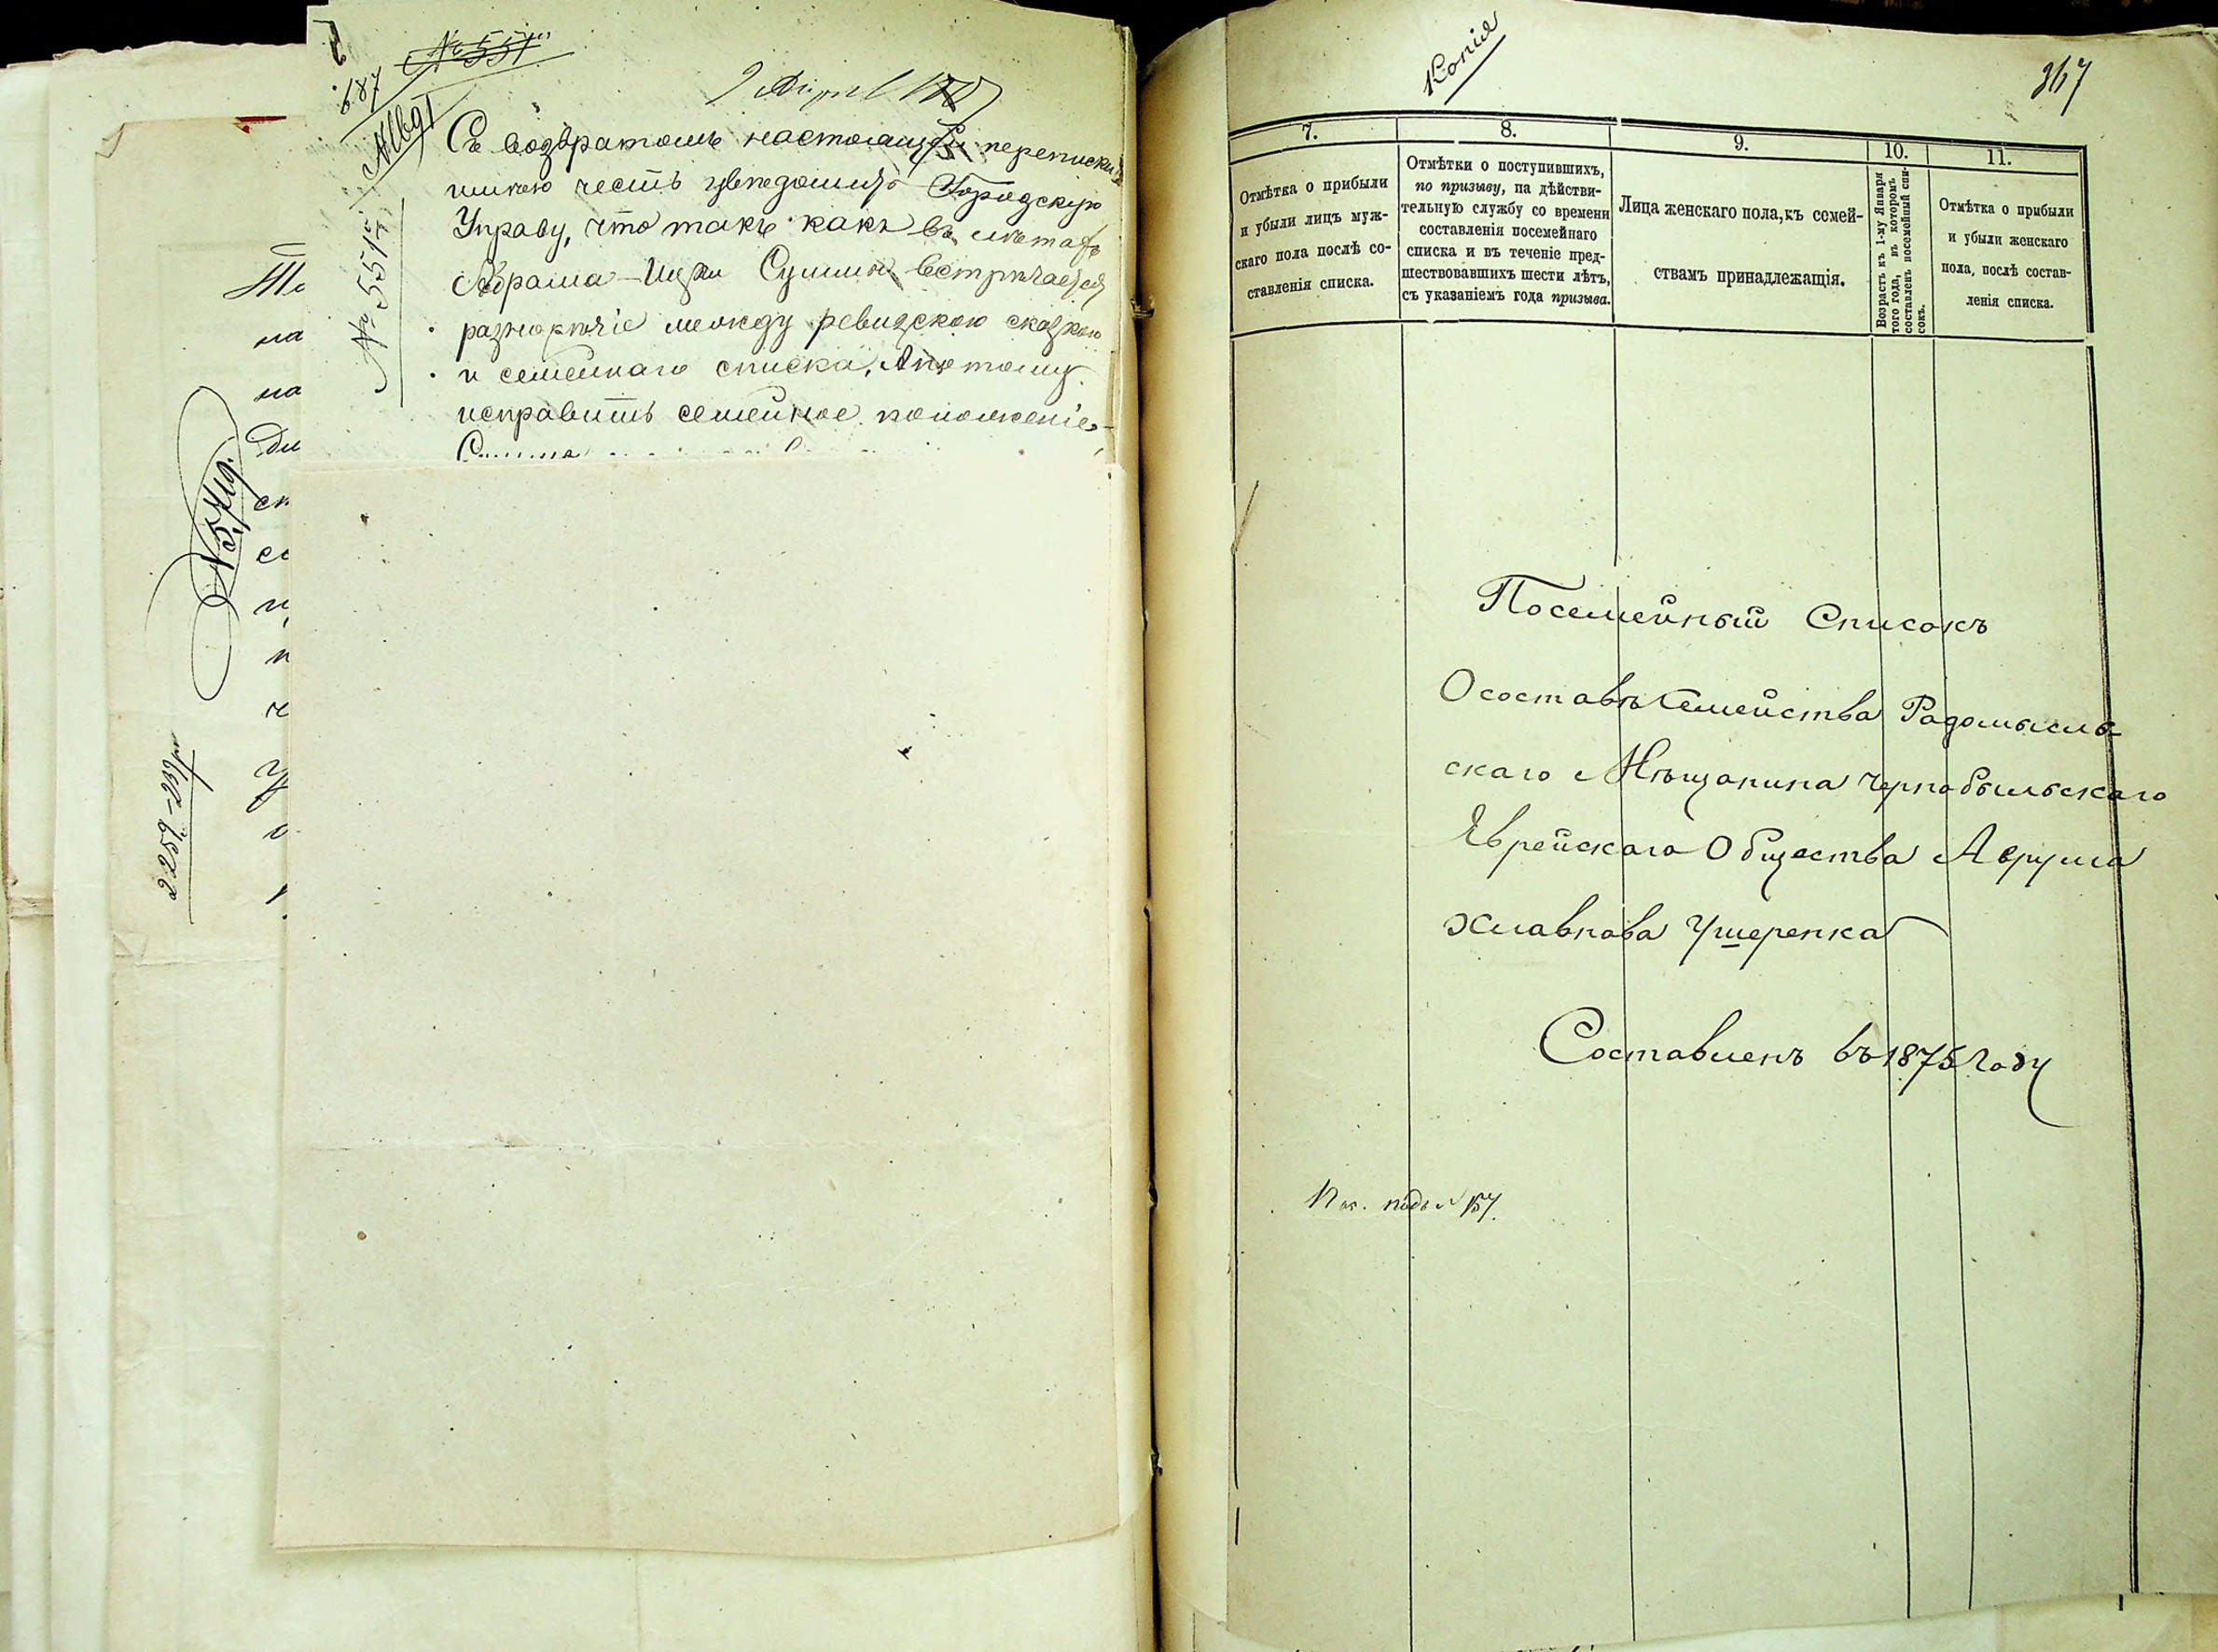 № 551
687
9 Апрѣл
Съ возвратомъ настоящей переписки
имѣю честь увѣдомить Городскую
Управу, что такъ какъ въ лѣтахъ
Абрама-Ицки Сушин встрѣчается
разнорѣчіе между ревизскою сказкою
и семейнаго списка, а потому
исправить семейное положеніе
№ 551
на
на
ск
2259
Копія
367
7.
Отмѣтка о прибыли
и убыли лицъ муж-
скаго пола послѣ со-
ставленія списка.
8.
Отмѣтки о поступившихъ,
по призыву, на дѣйстви-
тельную службу со времени
составленія посемейнаго
списка и въ теченіе пред-
шествовавшихъ шести лѣтъ,
съ указаніемъ года призыва.
9.
Лица женскаго пола, къ семей-
ствамъ принадлежащія.
10.
Возрастъ къ 1-му Января
того года, въ которомъ
составленъ посемейный спи-
сокъ.
11.
Отмѣтка о прибыли
и убыли женскаго
пола, послѣ состав-
ленія списка.
Посемейный Списокъ
О составѣ Семейства Радомысль-
скаго Мѣщанина Чернобыльскаго
Еврейскаго Общества Аврума
Хлавнова Ушеренка
Составленъ въ 1875 Году
подъ № 157.